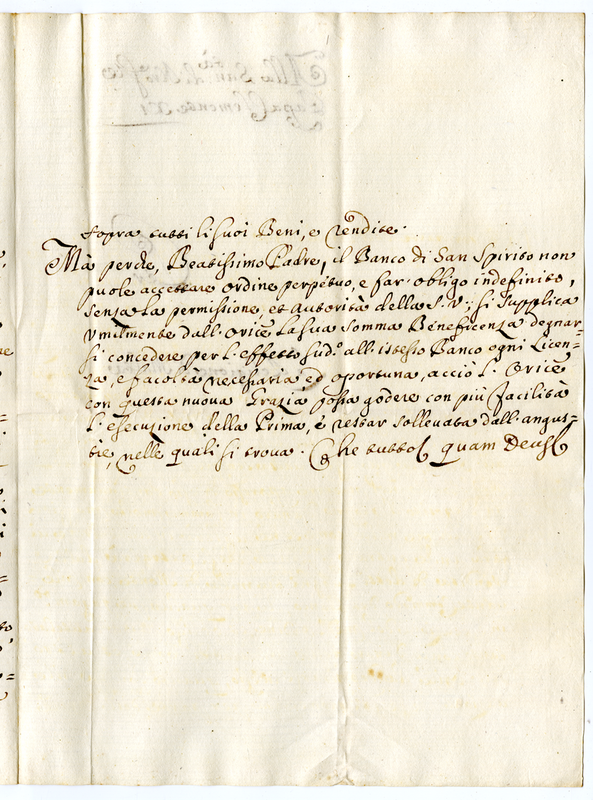 sopra tutti li suoi Beni, e rendite.
Mà perche, Beatissimo Padre, il Banco di San Spirito non
puole accettare ordine perpetuo, e far obligo indefinito,
senza la permissione, et autorità della S. V.; si supplica
umilmente dall' Orice la sua somma Beneficenza degnar-
si concedere per l' effetto sud.º all' istesso Banco ogni licen-
za, e facoltà necessaria ed oportuna, acciò l' Orice
con questa nuova Grazia possa godere con più facilità
l' esecuzione della Prima, e restar sollevata dall' angus=
tie, nelle quali si trova. Che tutto quam Deus